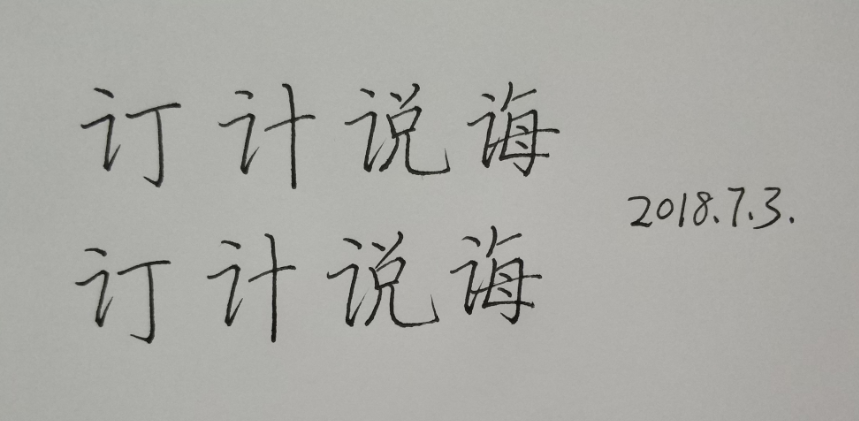 订计说诲
2018.7.3.
订计说诲